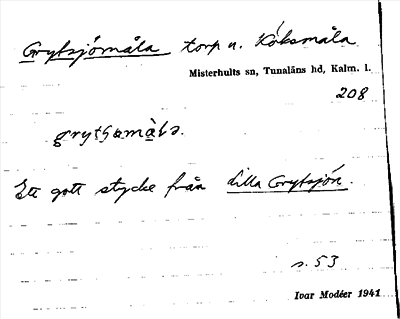 Grytsjömåla torp u. Kóksmåla
Misterhults sn, Tunaläns hd, Kalm. l.
208
Ett gott stycke från Lilla Grytsjön.
s. 53
Ivar Modéer 1941